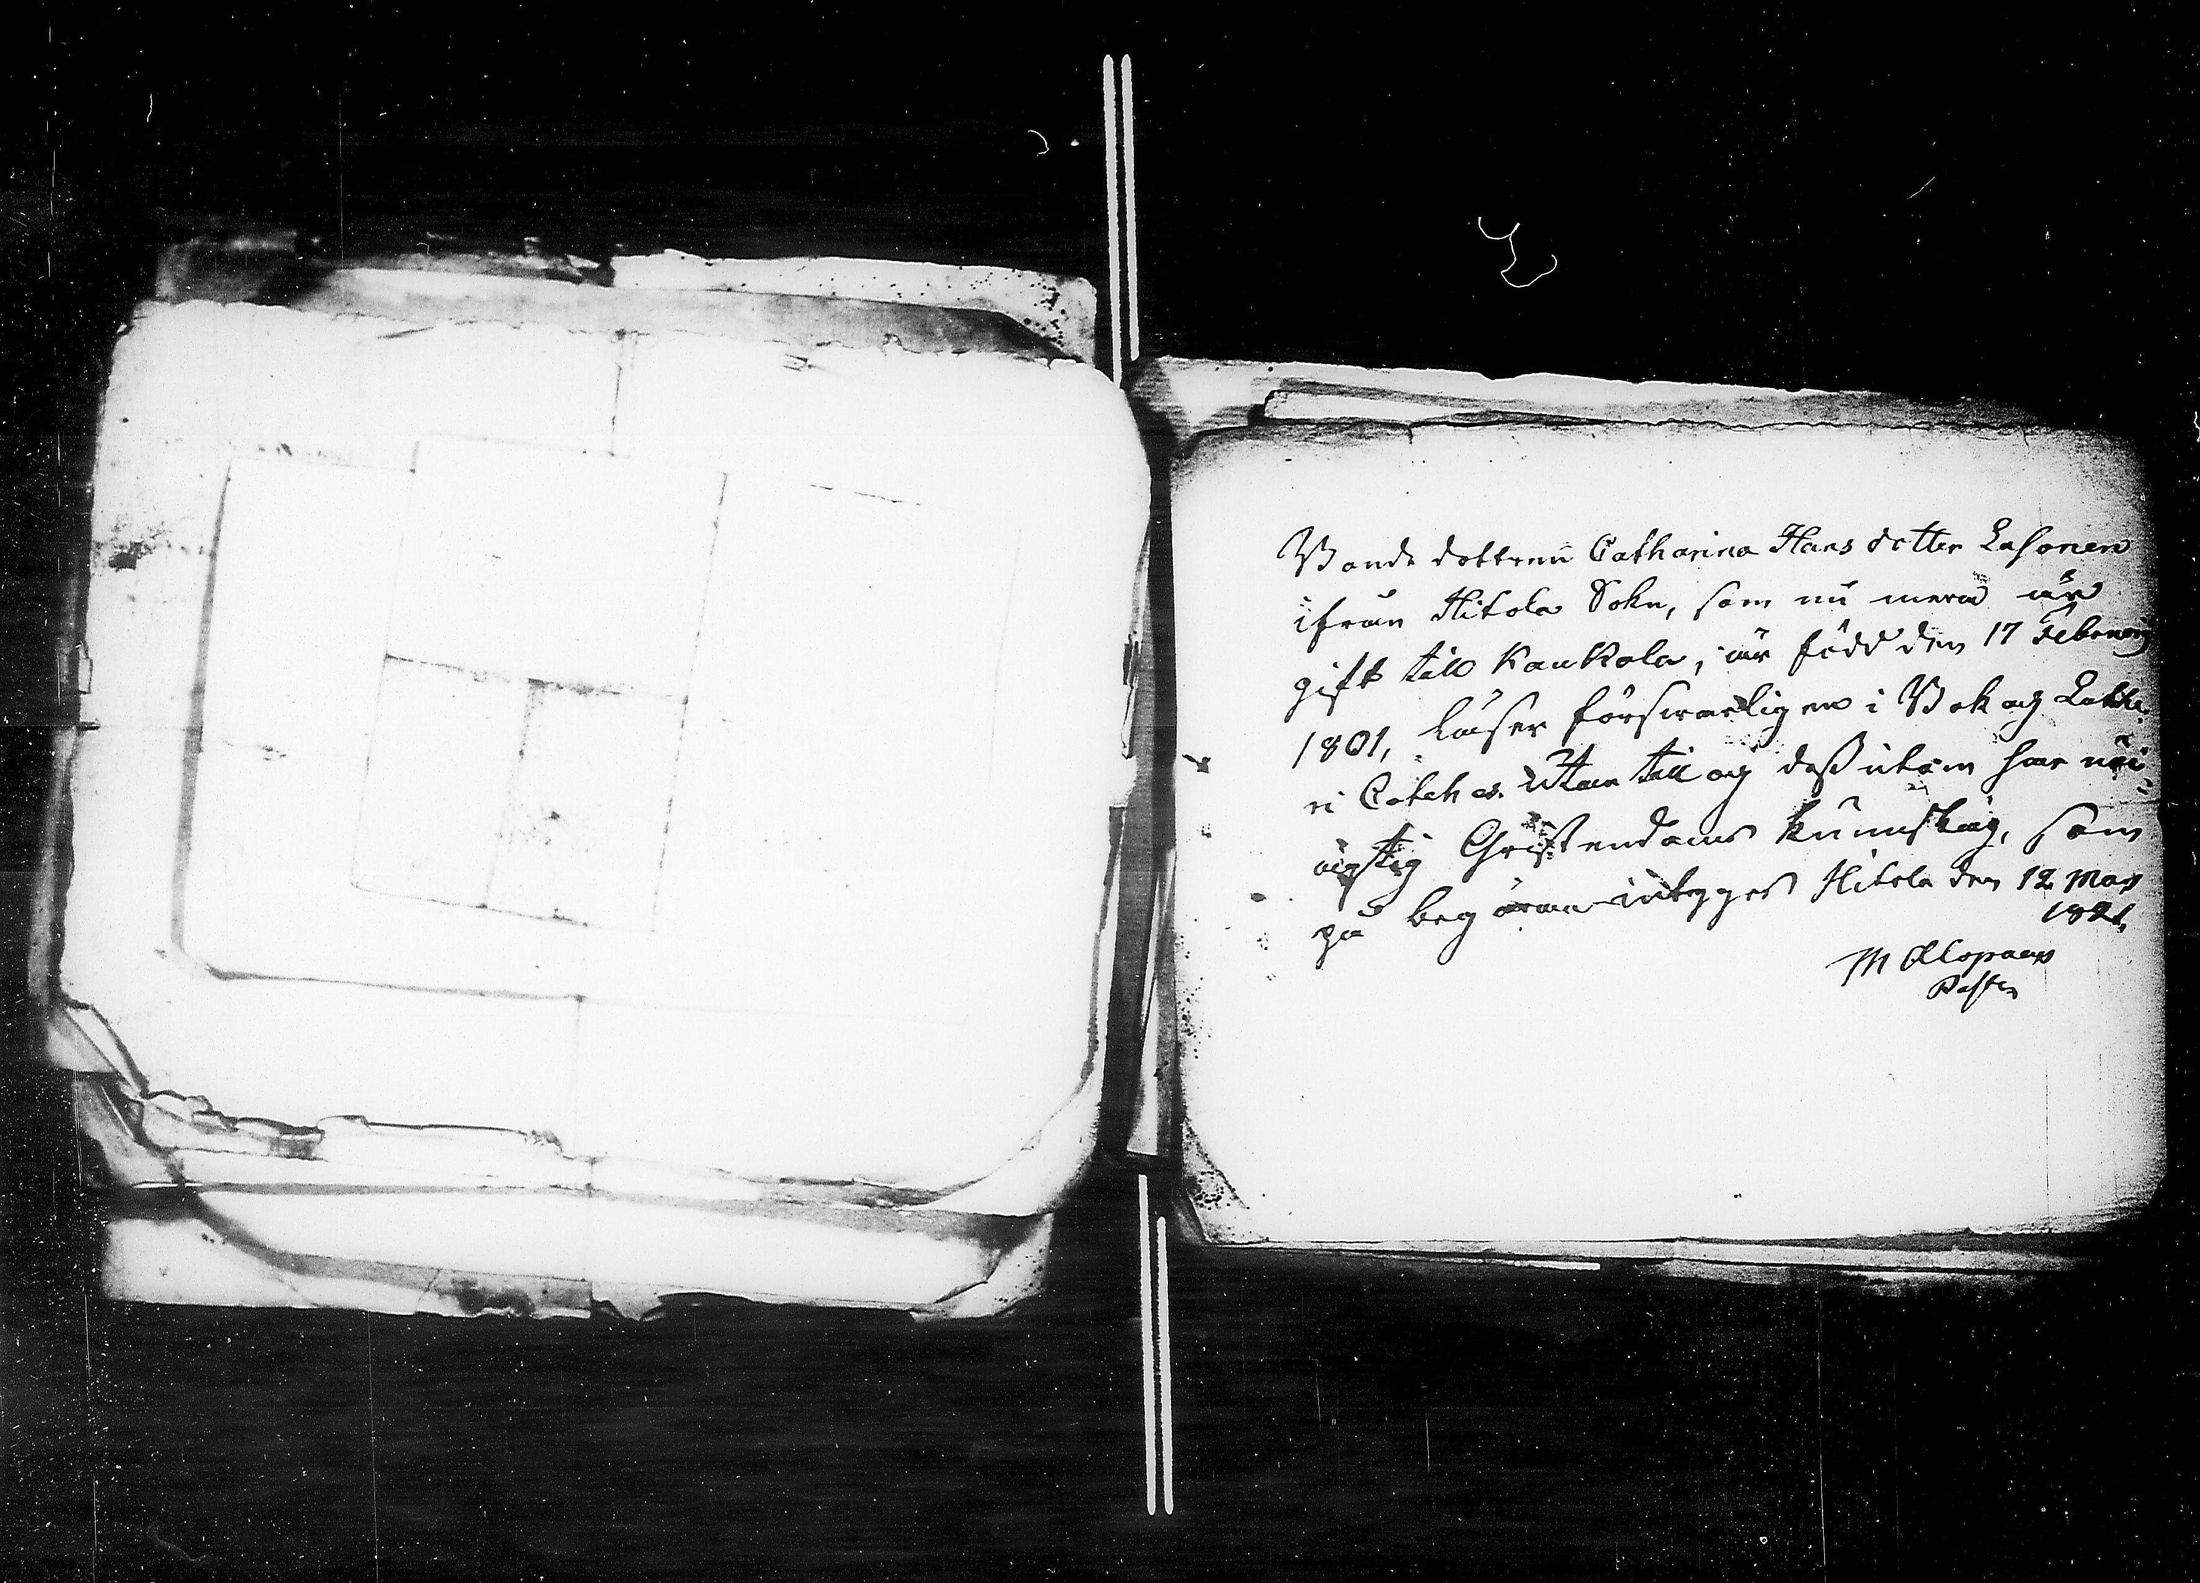 Bonde dottren Catharina Hans dotter Lasonen
ifrån Hitola Sokn, som nu mera är
gift till Kaukola, är född den 17 Februarij
1801, läser försvarligen i Bok och Luthe
ri Cateches. utan till och dessutom har nöj
agtig Christendoms kunskap, som
på begäran intygas Hitola den 12 Maj
1821.
M Alopaeus
Pastor